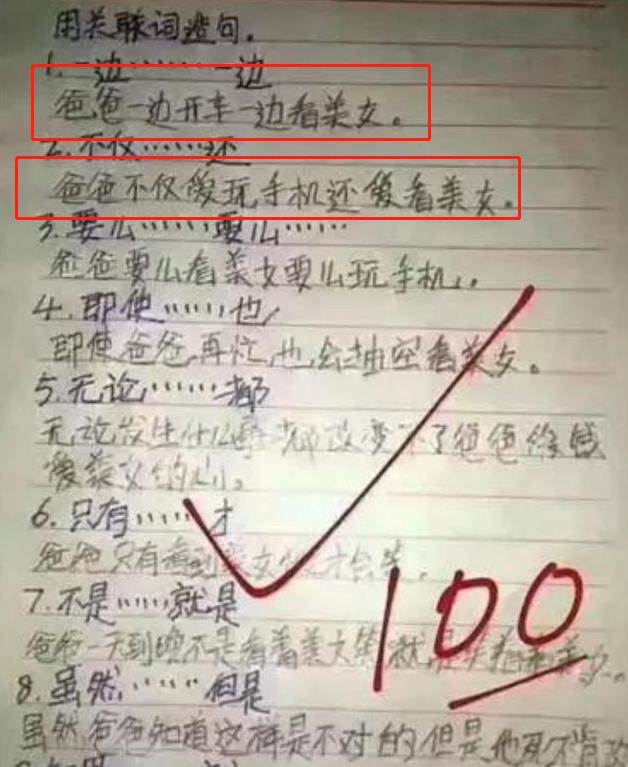 用关联词造句。
1.一边………一边
爸爸一边开车一边看美女。
2.不仅……还
爸爸不仅爱玩手机还爱看美女。
3.要么……要么……
爸爸要么看美女要么玩手机。
4.即使……也
即使爸爸再忙,也会抽空看美女。
5.无论……都
无论发生什么事都改变不了爸爸
爱美女的心。
6.只有……才
爸爸只有看到美女才会笑。
7.不是……就是
爸爸一天到晚不是看着美女笑就是
100
8.虽然……但是
虽然爸爸知道这样是不对的但是他死不肯改